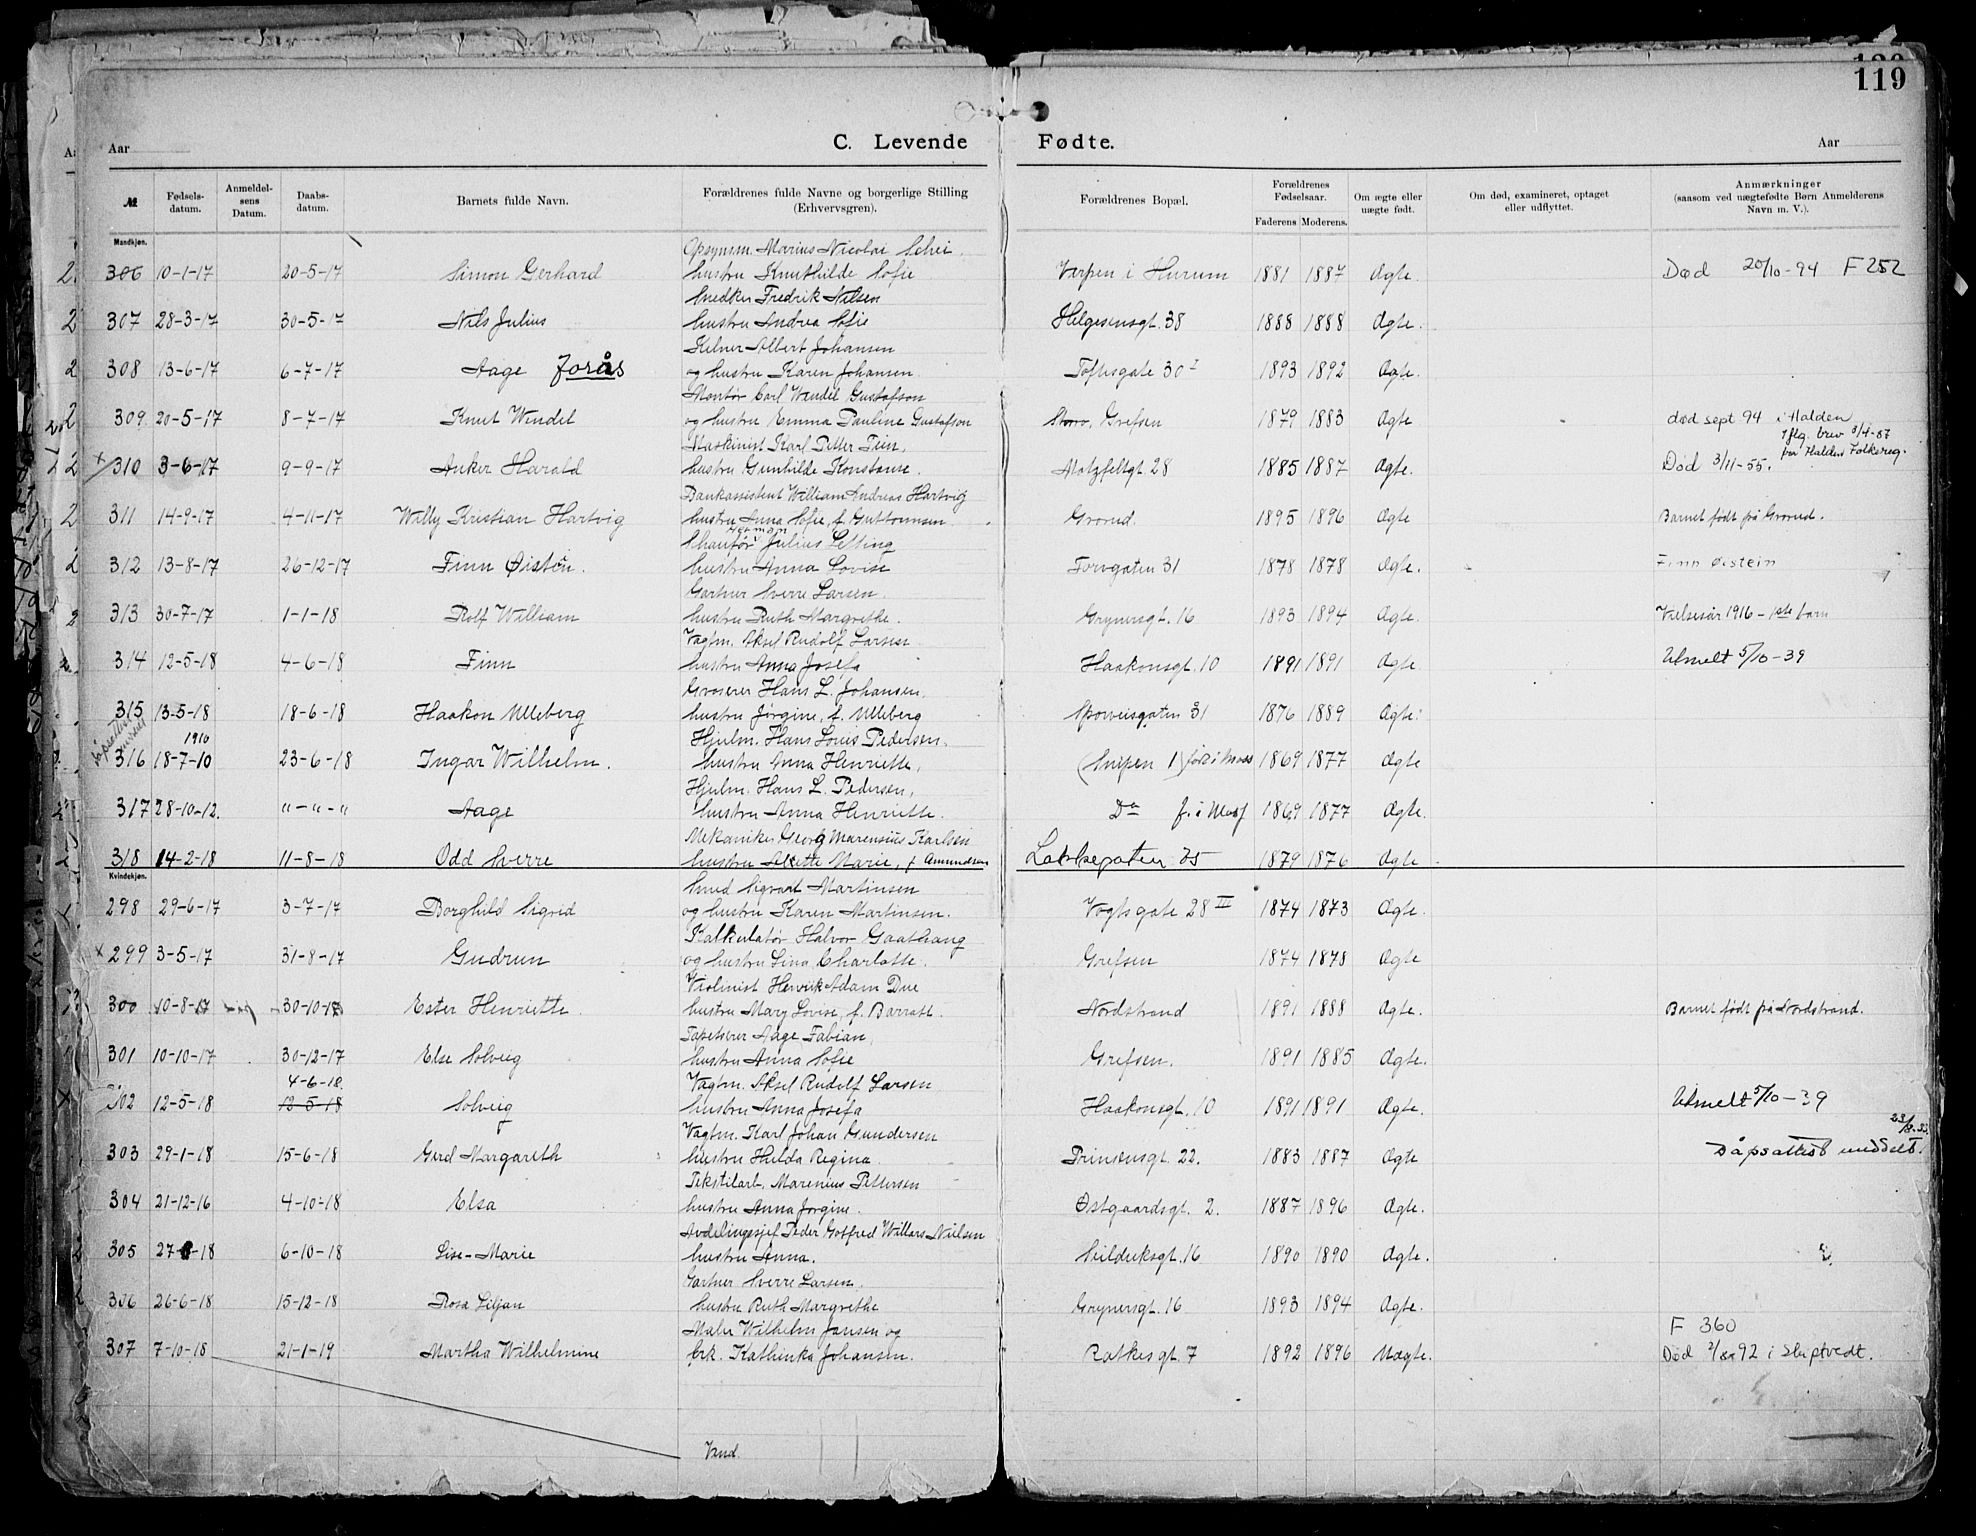 119
Aar C. Levende Fødte. Aar
№ Fødsels-datum. Anmeldelsens Datum. Daabs-datum. Barnets fulde Navn. Forældrenes fulde Navne og borgerlige Stilling (Erhvervsgren). Forældrenes Bopæl. Forældrenes Fødselsaar. Faderens Moderens. Om ægte eller uægte født. Om død, examineret, optaget eller udflyttet. Anmærkninger (saasom ved uægtefødte Børn Anmelderens Navn m. V.).
Mandkjøn.
Opsynsm. Marius Nicolai Schei,
306 10-1-17 20-5-17 Simon Gerhard hustru Knuthilde Sofie Verpen i Hurum 1881 1887 Ægte. Død 20/10-94 F 252
Snedker Fredrik Nilsen
307 28-3-17 30-5-17 Nils Julius hustru Andrea Sofie Helgesensgt. 38 1888 1888 Ægte.
Kelner Albert Johansen
308 13-6-17 6-7-17 Aage Forås og hustru Karen Johansen Toftesgate 30 I 1893 1892 Ægte.
Montør Carl Wendel Gustafson
309 20-5-17 8-7-17 Knut Wendel og hustru Emma Pauline Gustafson Storo, Grefsen 1879 1883 Ægte død sept 94 i Halden
iflg. brev 3/4-87
fra Halden Folkereg.
Maskinist Karl Petter Finn,
310 3-6-17 9-9-17 Anker Harald hustru Gunhilde Konstanse. Motzfeltgt 28 1885 1887 Ægte. Død 3/11-55.
Bankassistent William Andreas Hartvig
311 14-9-17 4-11-17 Willy Kristian Hartvig hustru Anna Sofie, f. Guttormsen. Grorud. 1895 1896 Ægte Barnet født på Grorud.
Herman
Chaufør Julius Letting
312 13-8-17 26-12-17 Finn Øistên. hustru Anna Lovise Torvgaten 31 1878 1878 Ægte. Finn Øistein
Gartner Sverre Larsen.
313 30-7-17 1-1-18 Rolf William hustru Ruth Margrethe. Grynersgt. 16 1893 1894 Ægte. Vielsesår 1916 - 1ste barn
Vagtm. Aksel Rudolf Larsen
314 12-5-18 4-6-18 Finn hustru Anna Josefa Haakonsgt. 10 1891 1891 Ægte. Utmelt 5/10-39
Groserer Hans L. Johansen,
315 13-5-18 18-6-18 Haakon Ulleberg hustru Jørgine, f. Ulleberg Sporveisgaten 31 1876 1889 Ægte.
1910
Hjulm. Hans Louis Pedersen,
316 18-7-10 23-6-18 Ingar Wilhelm. hustru Anna Henriette, (Snipen 1) før i Moss 1869 1877 Ægte
Hjulm. Hans L. Pedersen,
317 28-10-12. "-"-" Aage hustru Anna Henriette. Do f. i Moss 1869 1877 Ægte.
Mekaniker Georg Marensius Karlsen
318 14-2-18 11-8-18 Odd Sverre hustru Alette Marie, f. Amundsen Lakkegaten 35 1879 1876 Ægte
Kvindekjøn.
Smed Sigvart Martinsen
298 29-6-17 3-7-17 Borghild Sigrid og hustru Karen Martinsen. Vogtsgate 28 III 1874 1873 Ægte.
Kalkulatør Halvor Gaathaug
299 3-5-17 31-8-17 Gudrun og hustru Lina Charlotte. Grefsen 1874 1878 Ægte
Violinist Henrik Adam Due
300 10-8-17 30-10-17 Ester Henriette hustru Mary Lovise, f. Barratt. Nordstrand 1891 1888 Ægte. Barnet født på Nordstrand.
Tapetserer Aage Fabian,
301 10-10-17 30-12-17 Else Solveig hustru Anna Sofie Grefsen. 1891 1885 Ægte.
4-6-18
Vagtm. Aksel Rudolf Larsen
302 12-5-18 12-5-18 Solveig hustru Anna Josefa Haakonsgt. 10 1891 1891 Ægte. Utmelt 5/10-39
Vagtm. Karl Johan Gundersen
303 29-1-18 15-6-18 Gerd Margareth hustru Hilda Regina. Prinsensgt. 22. 1883 1887 Ægte Dåpsattest meddelt.
Tekstilarb. Marenius Pettersen
304 21-12-16 4-10-18 Elsa hustru Anna Jørgine. Østgaardsgt. 2. 1887 1896 Ægte.
Avdelingssjef Peder Gotfred Willars Nielsen
305 27-8-18 6-10-18 Lise-Marie hustru Anna. Seilduksgt. 16 1890 1890 Ægte.
Gartner Sverre Larsen.
306 26-6-18 15-12-18 Rosa Liljan hustru Ruth Margrethe Grynersgt. 16 1893 1894 Ægte.
F 360
Maler Wilhelm Jansen og
307 7-10-18 21-1-19 Martha Wilhelmine frk. Kathinka Johansen. Ratkesgt. 7 1892 1896 Uægte. Død 92 i Skiptvedt.
Vend.